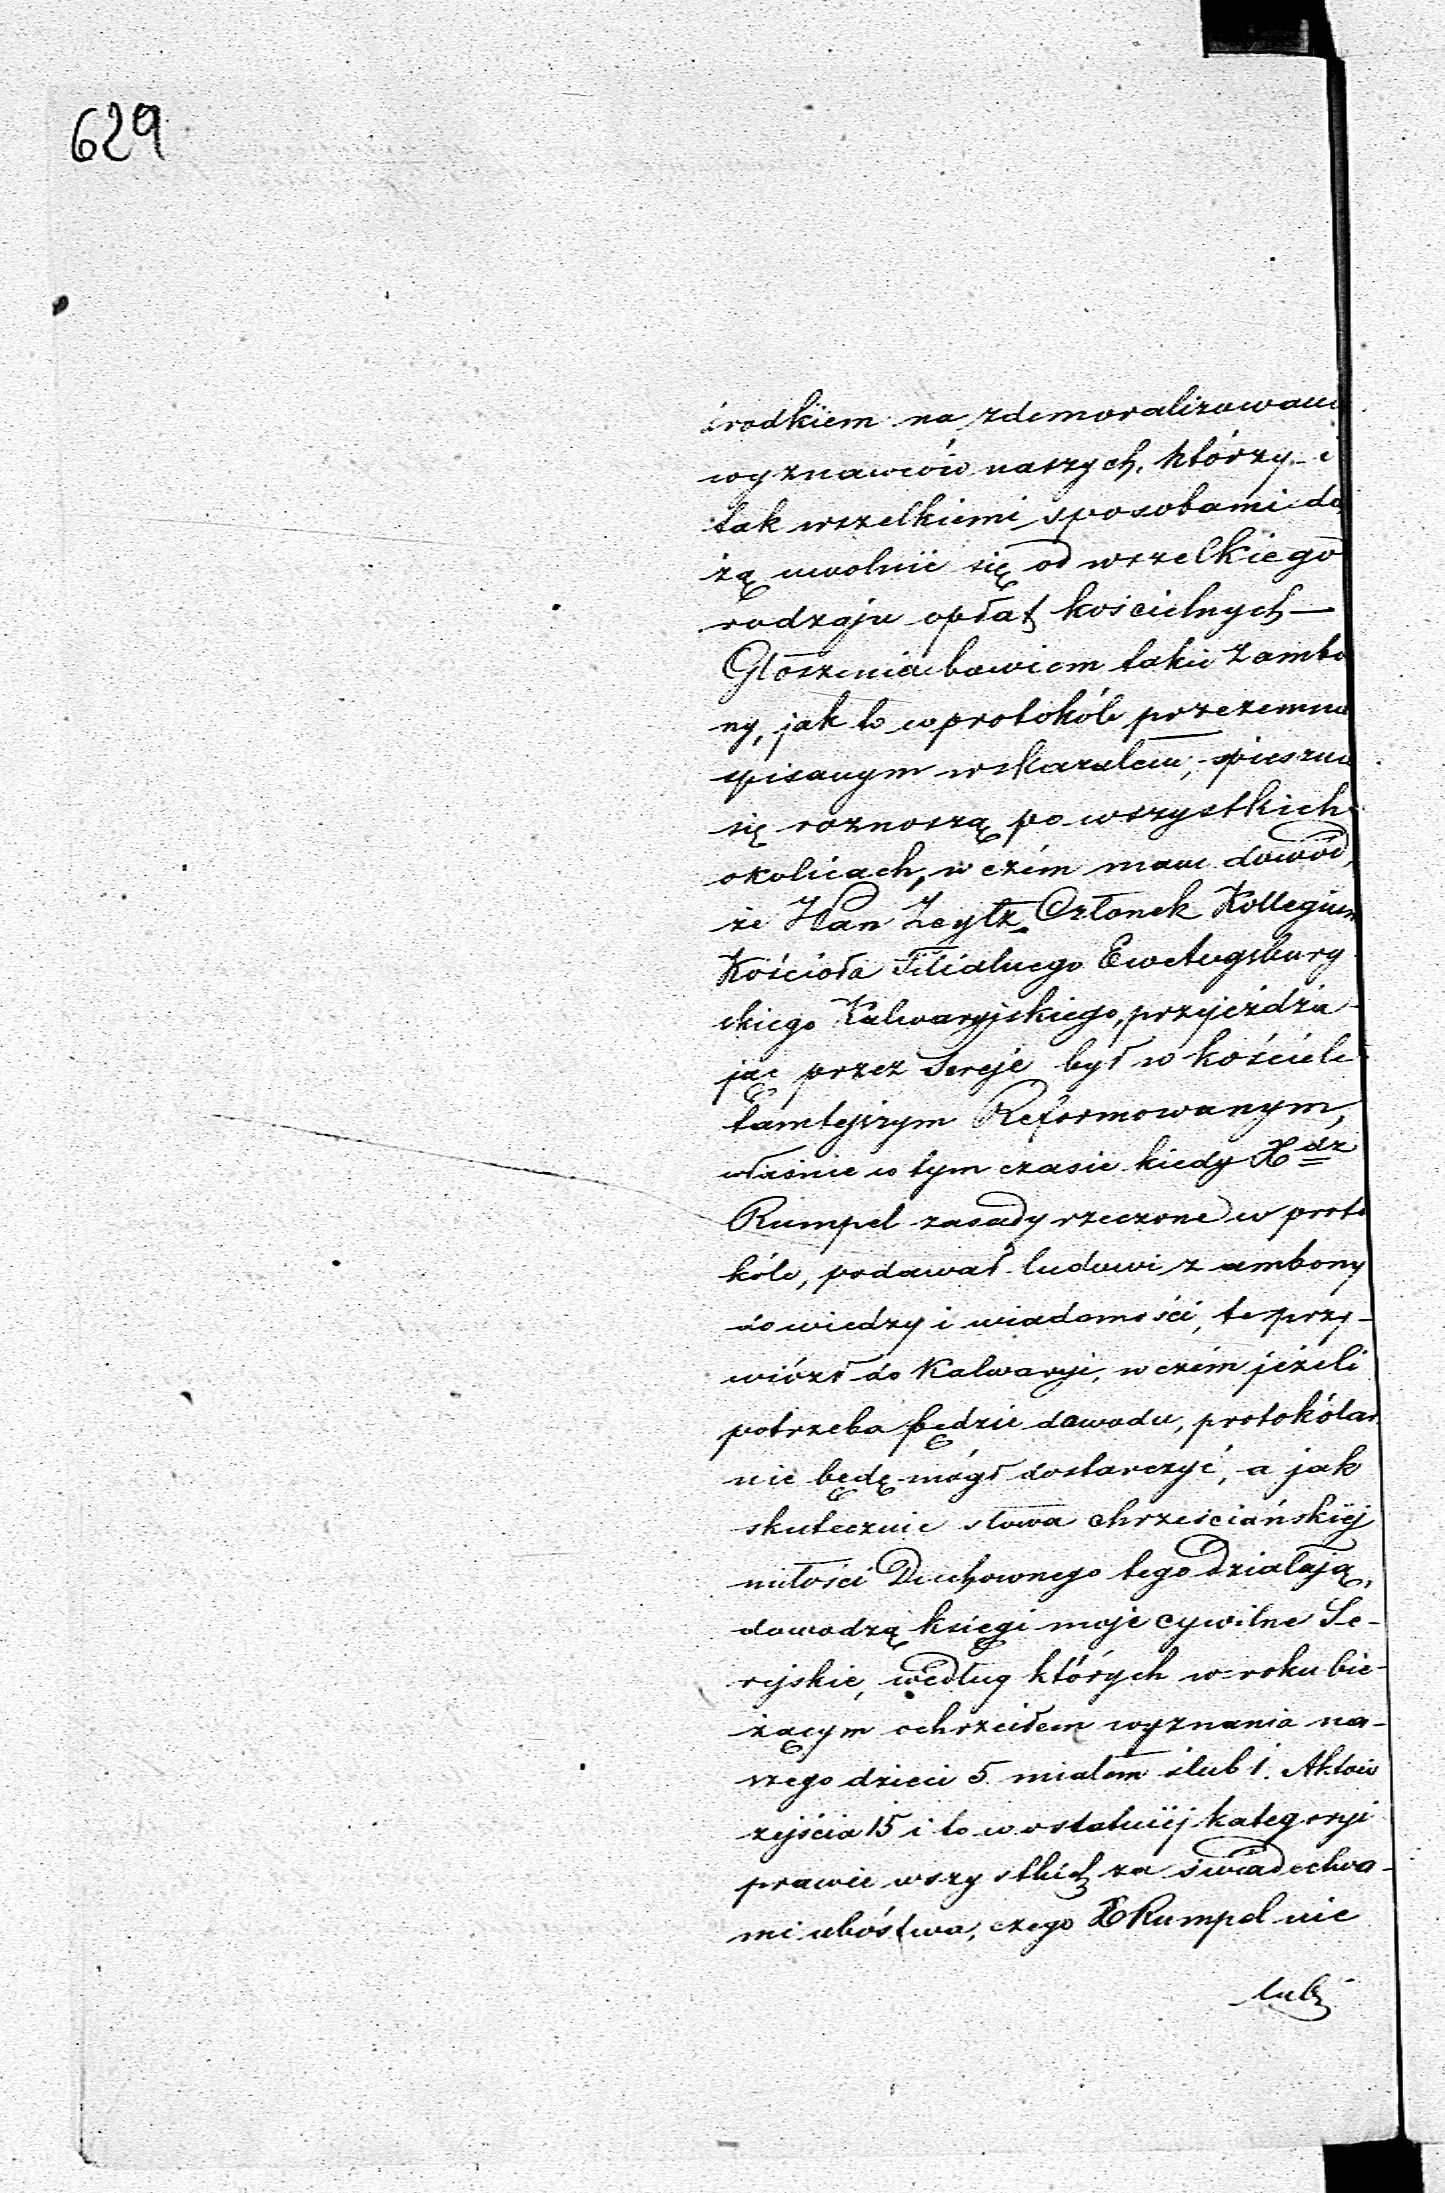 629
środkiem na zdemoralizowani
wyznawców naszych, którzy i
tak wszelkiemi sposobami dą
żą uwolnić się od wszelkiego
rodzaju opłat kościelnych —
Głoszenia bowiem takie z ambo
ny, jak to w protokóle przezemnie
spisanym wskazałem, spieszno
się roznoszą po wszystkich
okolicach, w czém mam dowód,
że Pan Zeytz Członek Kollegium
Kościoła Filialnego EweAugsburg
skiego Kalwaryjskiego, przejeżdża-
jąc przez Sereje był w kościele
tamtejszym Reformowanym,
właśnie w tym czasie kiedy Xdz
Rumpel zasady rzeczone w proto
kóle, podawał ludowi z ambony
do wiedzy i wiadomości, te przy-
wiózł do Kalwaryi, w czém jeżeli
potrzeba będzie dowodu, protokólar
nie będę mógł dostarczyć, a jak
skutecznie słowa chrześciańskiéj
miłości Duchownego tego działają,
dowodzą księgi moje cywilne Se-
rejskie, według których w roku bie-
żącym ochrzciłem wyznania na-
szego dzieci 5. miałem ślub 1. Aktów
zejścia 15 i to w ostatniéj kategoryi
prawie wszystkich za świadectwa-
mi ubóstwa, czego X Rumpel nie
lubi